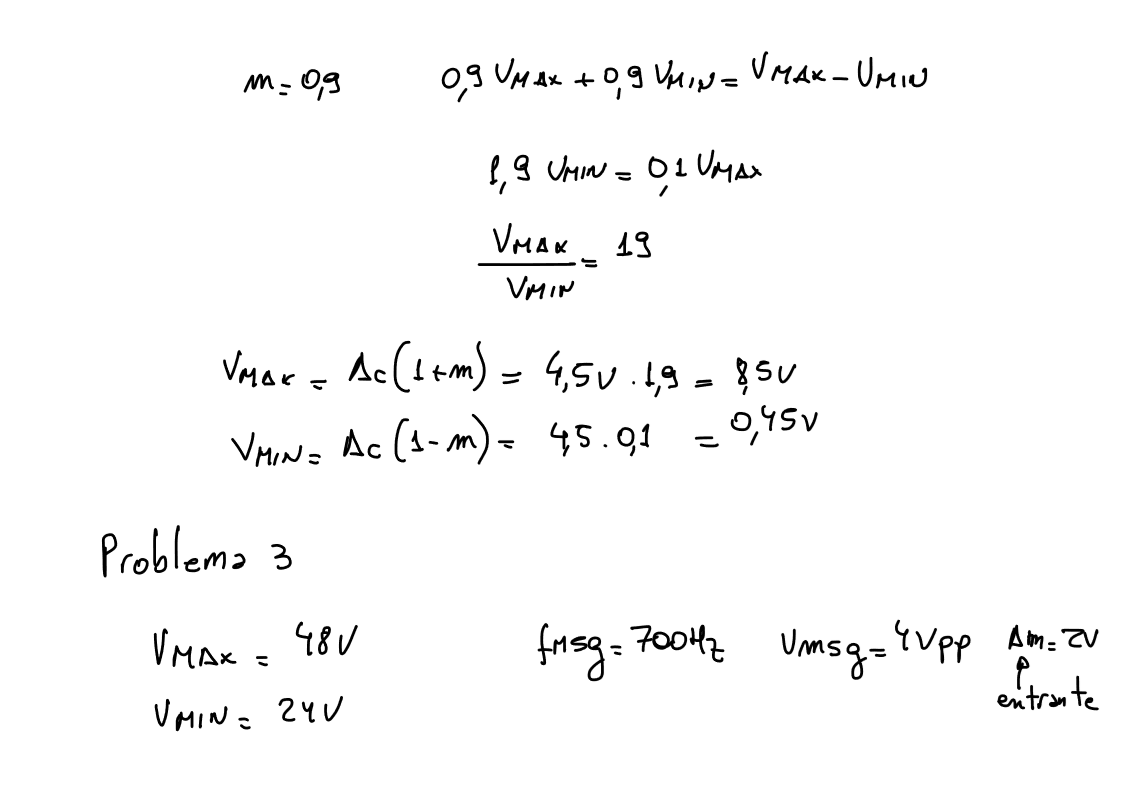 m = 0,9 0,9 VMAX + 0,9 VMIN = VMAX - VMIN
1,9 VMIN = 0,1 VMAX
VMAX / VMIN = 19
VMAX = Ac(1+m) = 4,5V . 1,9 = 8,5V
VMIN = Ac(1-m) = 4,5 . 0,1 = 0,45V
Problema 3
VMAX = 48V fmsg = 700Hz Vmsg = 4Vpp Am = 2V
VMIN = 24V entrante